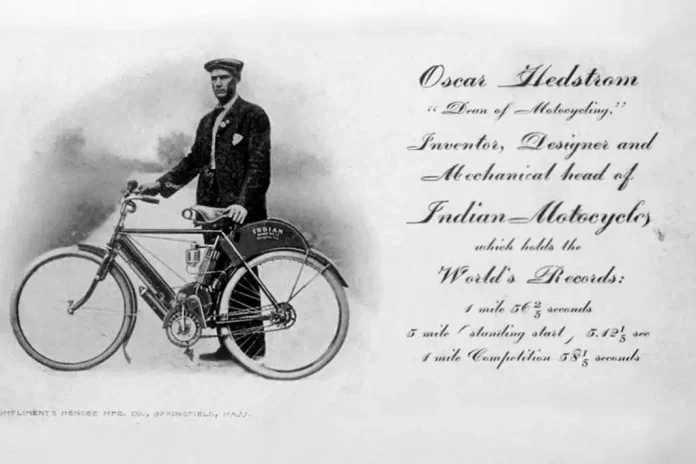 Oscar Hedstrom
"Dean of Motocycling."
Inventor, Designer and
Mechanical head of
Indian Motocycles
which holds the
World's Records:
1 mile 56 2/5 seconds
5 mile (standing start, 5.42 1/5 sec
1 mile Competition 58 1/5 seconds
INDIAN
OMPLIMENTS HENDEE MFG. CO., SPRINGFIELD, MASS.